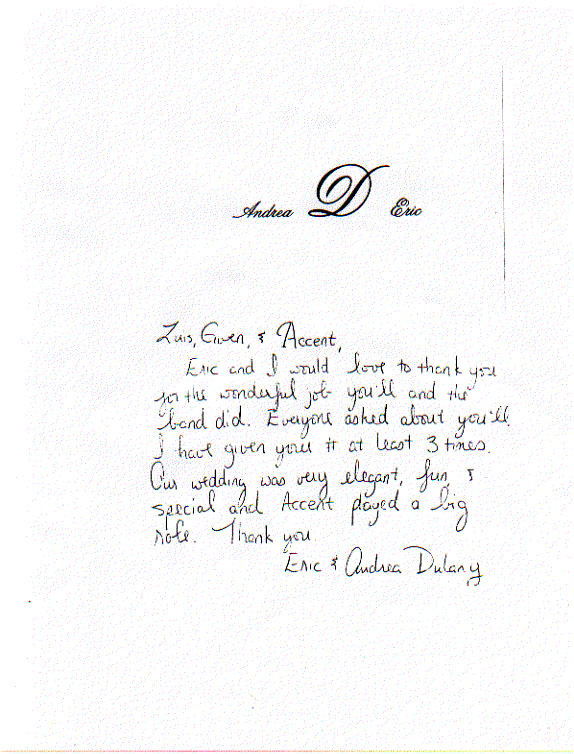 Andrea D Eric
Luis, Gwen, & Accent,
Eric and I would love to thank you
for the wonderful job you'll and the
band did. Everyone asked about you'll.
I have given your # at least 3 times.
Our wedding was very elegant, fun, &
special and Accent played a big
role. Thank you
Eric & Andrea Dulany